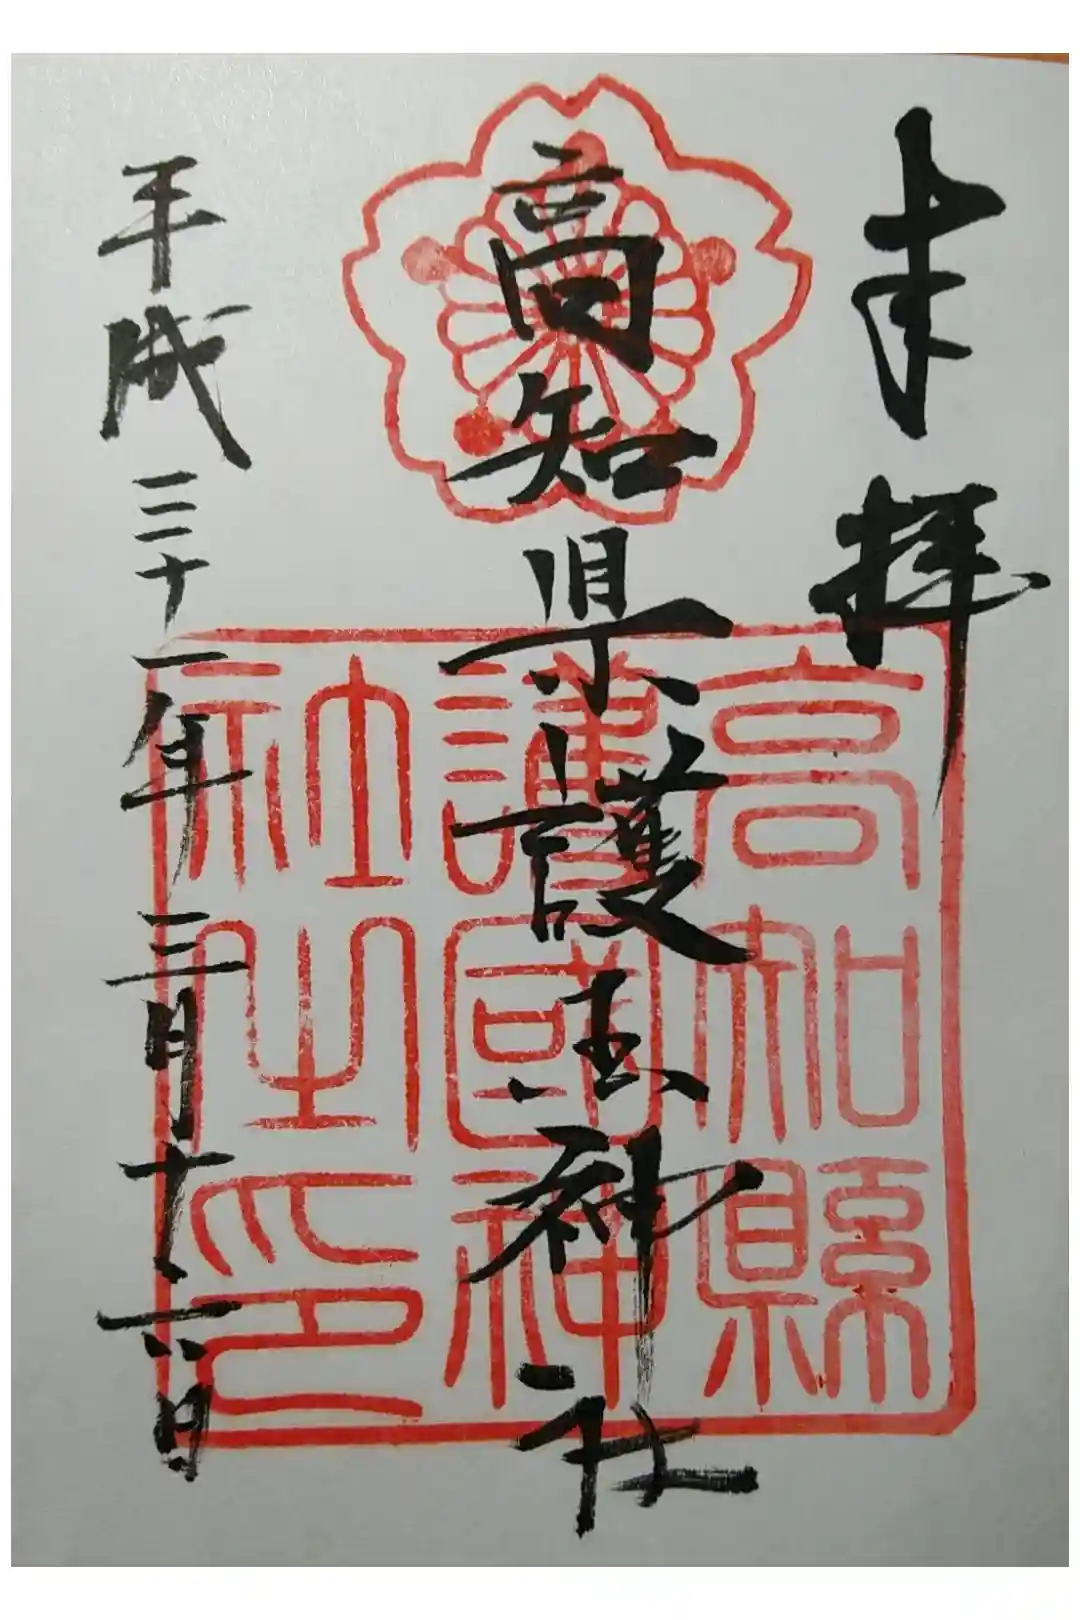 奉拝
高知県護国神社
平成三十一年三月十六日
高知縣
護國神
社之印